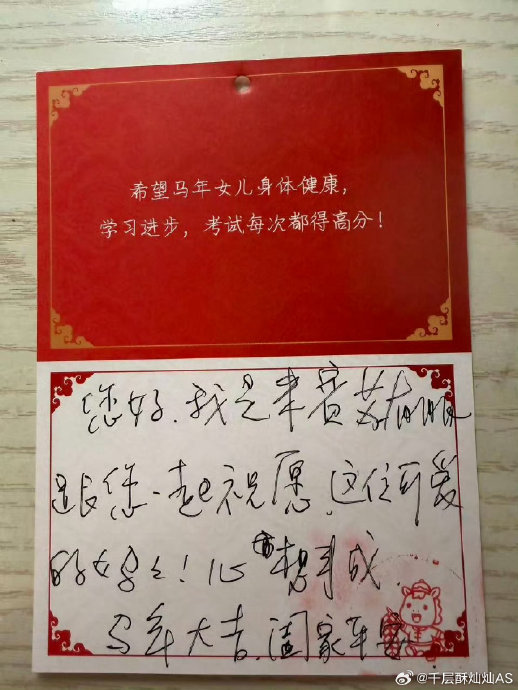 希望马年女儿身体健康，
学习进步，考试每次都得高分！
您好.我是来宾
跟您一起祝愿.这位可爱
的女孩！心想事成
马年大吉.阖家平安
@千层酥灿灿AS